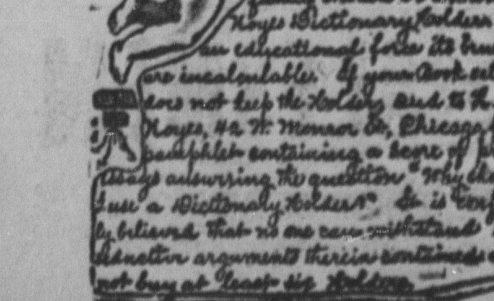 Noyes Dictionary Holders
an educational force its
are incalculable. If your Book
does not keep the Holders send to
Noyes, 42 W. Monroe St, Chicago
pamphlet containing a score of
essays answering the question "Why
I use a Dictionary Holder?" It is
ly believed that no one can withstand
seductive arguments therein contained
not buy at least six Holders